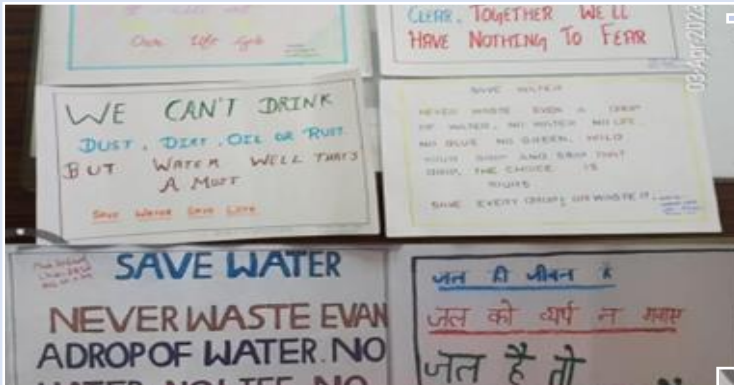 Our Life Cycle
CLEAR, TOGETHER WE'LL
HAVE NOTHING TO FEAR
03-Apr-2023
WE CAN'T DRINK
DUST, DIRT, OIL OR RUST
BUT WATER WELL THAT'S
A MUST
SAVE WATER SAVE LIFE
SAVE WATER
NEVER WASTE EVEN A DROP
OF WATER, NO WATER NO LIFE
NO BLUE NO GREEN. HOLD
YOUR DROP AND DROP THAT
DROP, THE CHOICE IS
YOURS
SAVE EVERY DROP, OR WASTE IT
SAVE WATER
NEVER WASTE EVAN
A DROP OF WATER. NO
WATER NO LIFE NO
जल ही जीवन है
जल को व्यर्प न गवाए
जल है तो